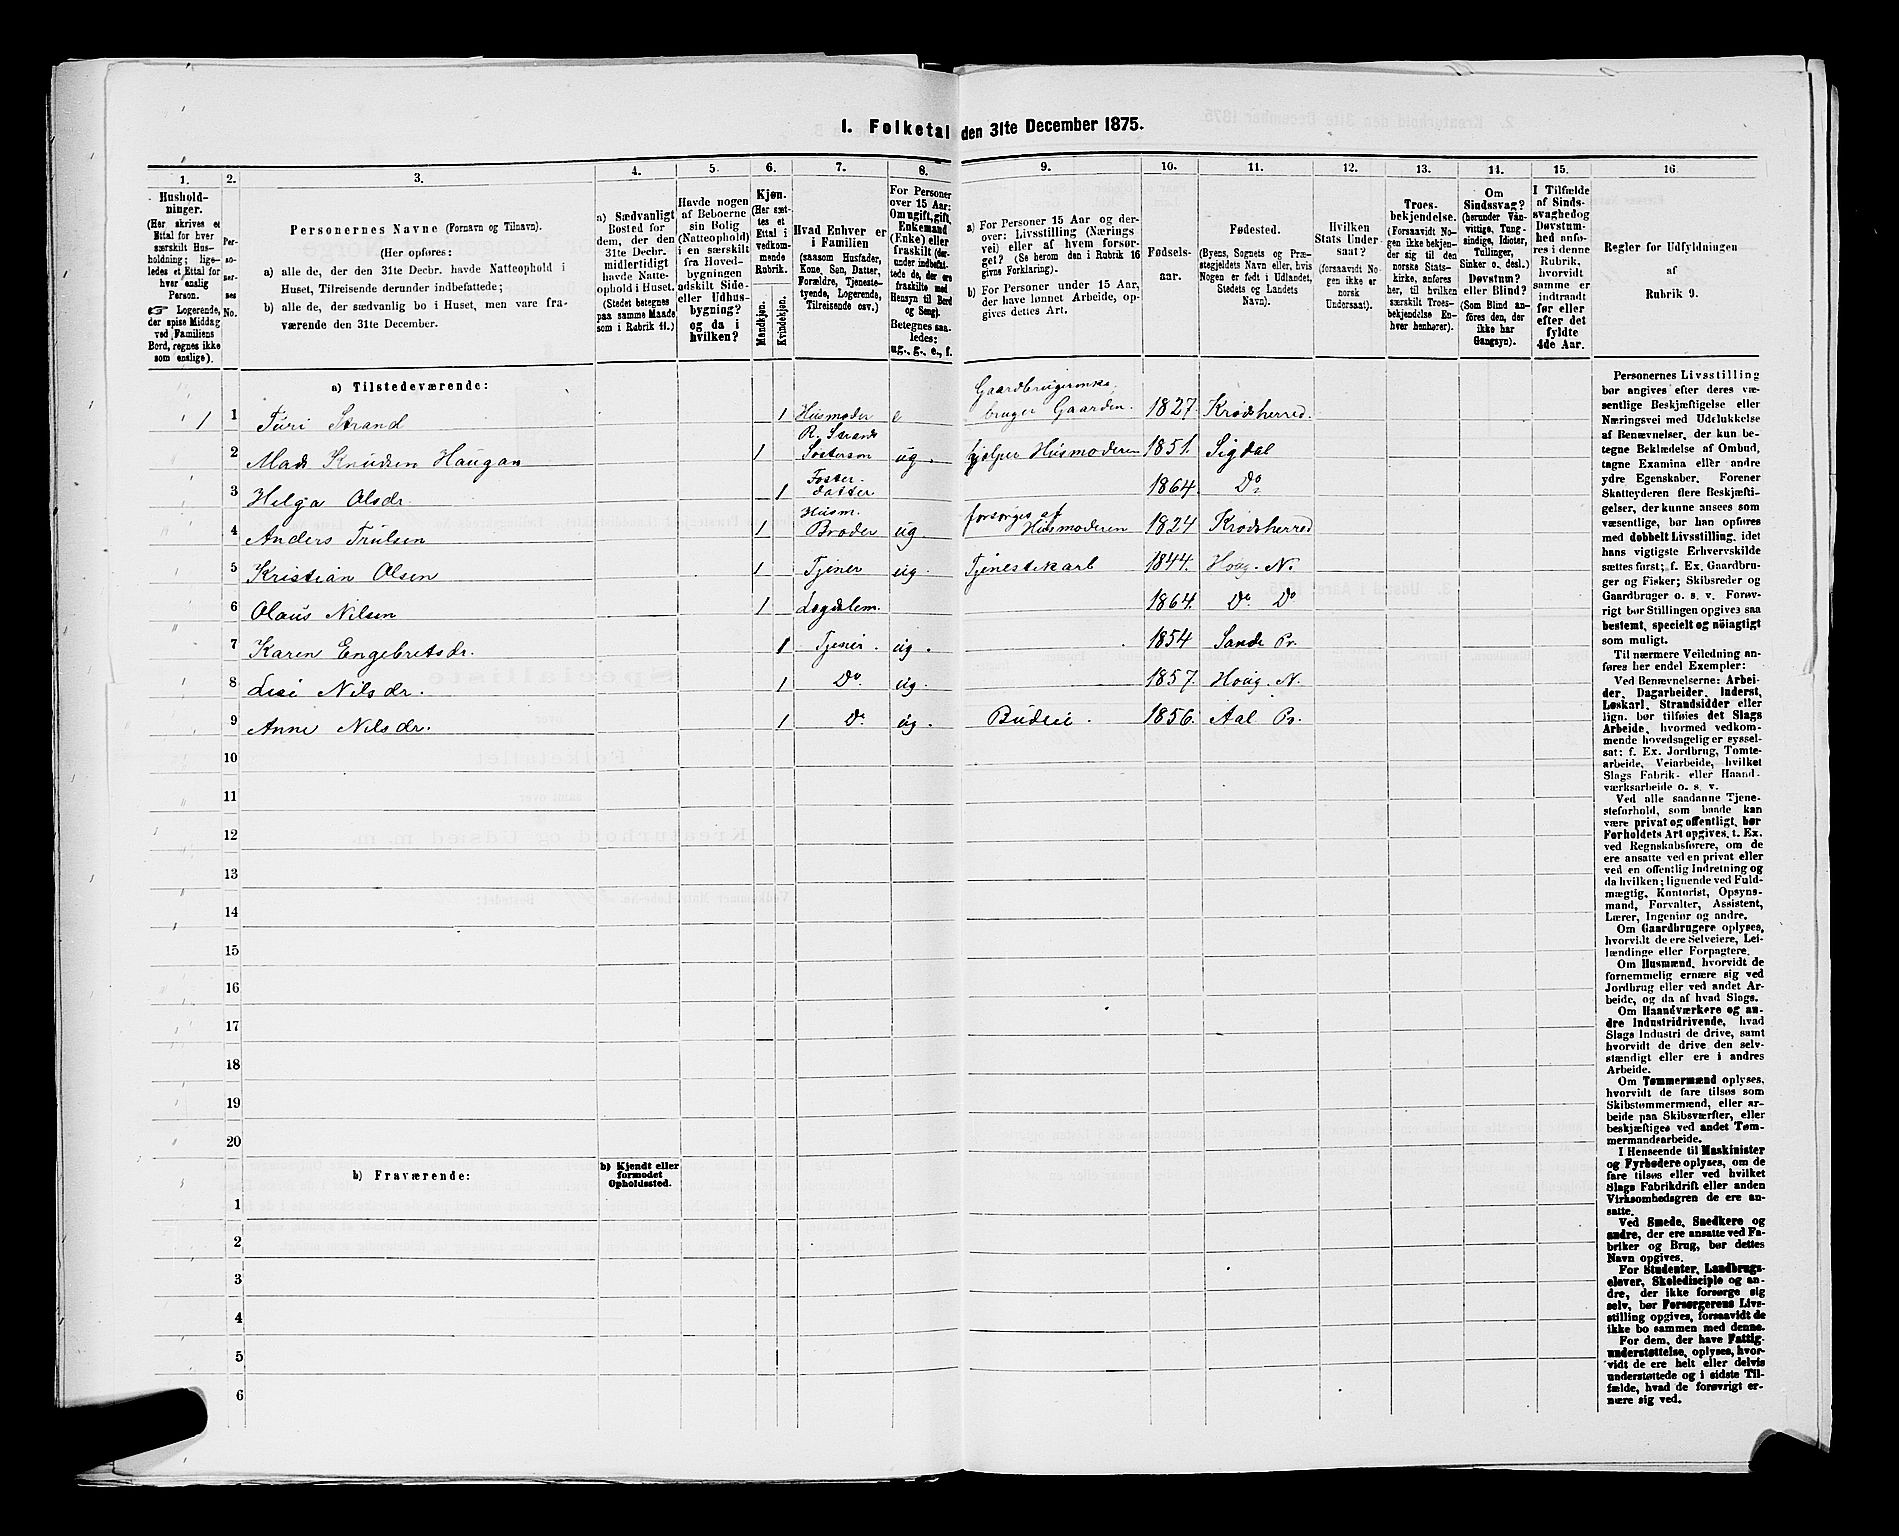 I. Folketal den 31te December 1875.
1. 2. 3. 4. 5. 6. 7. 8. 9. 10. 11. 12. 13. 14. 15. 16
Husholdninger.
(Her skrives et
Ettal for hver
særskilt Husholdning; ligeledes et Ettal for
hver enslig
Person.
☞ Logerende,
der spise Middag
ved Familiens
Bord, regnes ikke
som enslige).
Personernes No.
Personernes Navne (Fornavn og Tilnavn).
(Her opføres:
a) alle de, der den 31te Decbr. havde Natteophold i
Huset, Tilreisende derunder indbefattede;
b) alle de, der sædvanlig bo i Huset, men vare fraværende den 31te December.
a) Sædvanligt
Bosted for
dem, der den
31te Decbr.
midlertidigt
havde Natteophold i Huset.
(Stedet betegnes
paa samme Maade
som i Rubrik 11.)
Havde nogen
af Beboerne
sin Bolig
(Natteophold)
i en særskilt
fra Hovedbygningen
adskilt Side- eller Udhusbygning?
og da i
hvilken?
Kjøn.
(Her sættes et
Ettal i
vedkommende
Rubrik.
Mandkjøn.
Kvindekjøn.
Hvad Enhver er
i Familien
(saasom Husfader,
Kone, Søn, Datter,
Forældre, Tjenestetyende, Logerende,
Tilreisende osv.)
For Personer
over 15 Aar:
Om ugift, gift,
Enkemand
(Enke) eller
fraskilt (derunder indbefattede de, der ere
fraskilte med
Hensyn til Bord
og Seng).
Betegnes saaledes:
ug., g., e., f.
a) For Personer 15 Aar og derover: Livsstilling (Næringsvei) eller af hvem forsørget? (Se herom den i Rubrik 16
givne Forklaring).
b) For Personer under 15 Aar,
der have lønnet Arbeide, opgives dettes Art.
Fødselsaar.
Fødested.
(Byens, Sognets og Præstegjeldets Navn eller, hvis
Nogen er født i Udlandet,
Stedets og Landets
Navn).
Hvilken
Stats Undersaat?
(forsaavidt Nogen ikke er
norsk
Undersaat).
Troesbekjendelse.
(Forsaavidt Nogen ikke bekjender sig til den
norske Statskirke, anføres
her, til hvilken
særskilt Troesbekjendelse Enhver henhører).
Om
Sindssvag?
(herunder Vanvittige, Tungsindige, Idioter,
Tullinger,
Sinker o. desl.)
Døvstum?
eller Blind?
(Som Blind anføres den, der
ikke har
Gangsyn).
I Tilfælde
af Sindssvaghed og
Døvstumhed anføres i denne
Rubrik,
hvorvidt
samme er
indtraadt
før eller
efter det
fyldte
4de Aar.
Regler for Udfyldningen
af
Rubrik 9.
a) Tilstedeværende:
1 1 Turi Strand 1 Husmoder e Gaardbrugerenke bruger Gaarden. 1827. Krødsherred.
2 Mads Knudsen Haugan 1 R. Strands Søsterson ug. hjelper Husmoderen 1851. Sigdal
3 Helga Olsdr. 1 Foster-datter 1864. Do
4 Anders Trulsen 1 Husm. Broder ug. forsørges af Husmoderen 1824 Krødsherred
5 Kristian Olsen 1 Tjener ug. Tjenestekarl 1844. Houg. N.
6 Olaus Nilsen 1 Lægdslem. 1864. Do. Do
7 Karen Engebretsdr. 1 Tjener. ug. 1854 Sande Pr.
8 Lisi Nilsdr. 1 Do. ug. 1857. Houg. N.
9 Anne Nilsdr. 1 Do. ug. Budeie. 1856. Aal Pr.
10
11
12
13
14
15
16
17
18
19
20
b) Fraværende:
b) Kjendt eller
formodet
Opholdssted.
1
2
3
4
5
6
Personernes Livsstilling
bør angives efter deres væsentlige Beskjæftigelse eller
Næringsvei med Udelukkelse
af Benævnelser, der kun betegne Beklædelse af Ombud,
tagne Examina eller andre
ydre Egenskaber. Forener
Skatteyderen flere Beskjæftigelser, der kunne ansees som
væsentlige, bør han opføres
med dobbelt Livsstilling, idet
hans vigtigste Erhvervskilde
sættes først; f. Ex. Gaardbruger og Fisker; Skibsreder og
Gaardbruger o. s. v. Forøvrigt bør Stillingen opgives saa
bestemt, specielt og nöiagtigt
som muligt.
Til nærmere Veiledning anføres her endel Exempler:
Ved Benævnelserne: Arbeider, Dagarbeider, Inderst,
Løskarl, Strandsidder eller
lign. bør tilføies det Slags
Arbeide, hvormed vedkommende hovedsagelig er sysselsat: f. Ex. Jordbrug, Tomtearbeide, Veiarbeide, hvilket
Slags Fabrik- eller Haandværksarbeide o. s. v.
Ved alle saadanne Tjenesteforhold, som baade kan
være privat og offentligt, bør
Forholdets Art opgives, t. Ex.
ved Regnskabsførere, om de
ere ansatte ved en privat eller
ved en offentlig Indretning og
da hvilken; lignende ved Fuldmægtig, Kontorist, Opsynsmand, Forvalter, Assistent,
Lærer, Ingeniør og andre.
Om Gaardbrugere oplyses,
hvorvidt de ere Selveiere, Leilændinge eller Forpagtere.
Om Husmænd, hvorvidt de
fornemmelig ernære sig ved
Jordbrug eller ved andet Arbeide, og da af hvad Slags.
Om Haandværkere og andre Industridrivende, hvad
Slags Industri de drive, samt
hvorvidt de drive den selvstændigt eller ere i andres
Arbeide.
Om Tømmermænd oplyses,
hvorvidt de fare tilsøs som
Skibstømmermænd, eller arbeide paa Skibsværfter, eller
beskjæftiges ved andet Tømmermandearbeide.
I Henseende til Maskinister
og Fyrbødere oplyses, om de
fare tilsøs eller ved hvilket
Slags Fabrikdrift eller anden
Virksomhedsgren de ere ansatte.
Ved Smede, Snedkere og
andre, der ere ansatte ved Fabriker og Brug, bør dettes
Navn opgives.
For Studenter, Landbrugselever, Skoledisciple og andre, der ikke forsørge sig
selv, bør Forsørgerens Livsstilling opgives, forsaavidt de
ikke bo sammen med denne.
For dem, der have Fattigunderstøttelse, oplyses, hvorvidt de ere helt eller delvis
understøttede og i sidste Tilfælde, hvad de forøvrigt ernære sig ved.